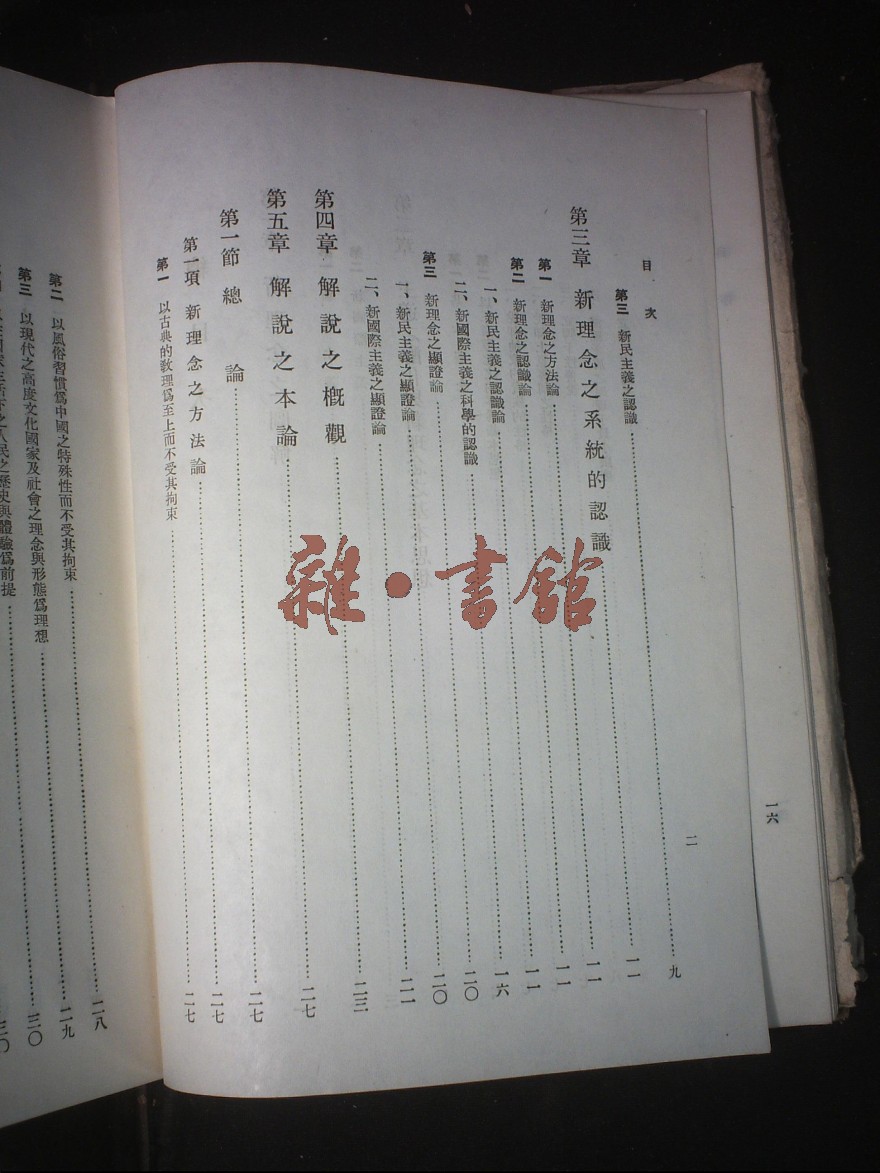 一六
目次
二
第三 新民主義之認識……九
第三章 新理念之系統的認識……一一
第一 新理念之方法論……一一
第二 新理念之認識論……一一
一、新民主義之認識論……一一
二、新國際主義之科學的認識……一六
第三 新理念之顯證論……二〇
一、新民主義之顯證論……二〇
二、新國際主義之顯證論……二一
第四章 解說之概觀……二三
第五章 解說之本論……二七
第一節 總論……二七
第一項 新理念之方法論……二七
第一 以古典的教理爲至上而不受其拘束……二七
第二 以風俗習慣爲中國之特殊性而不受其拘束……二八
第三 以現代之高度文化國家及社會之理念與形態爲理想……二九
之人民之歷史與體驗爲前提……三〇
三〇
雜·書館